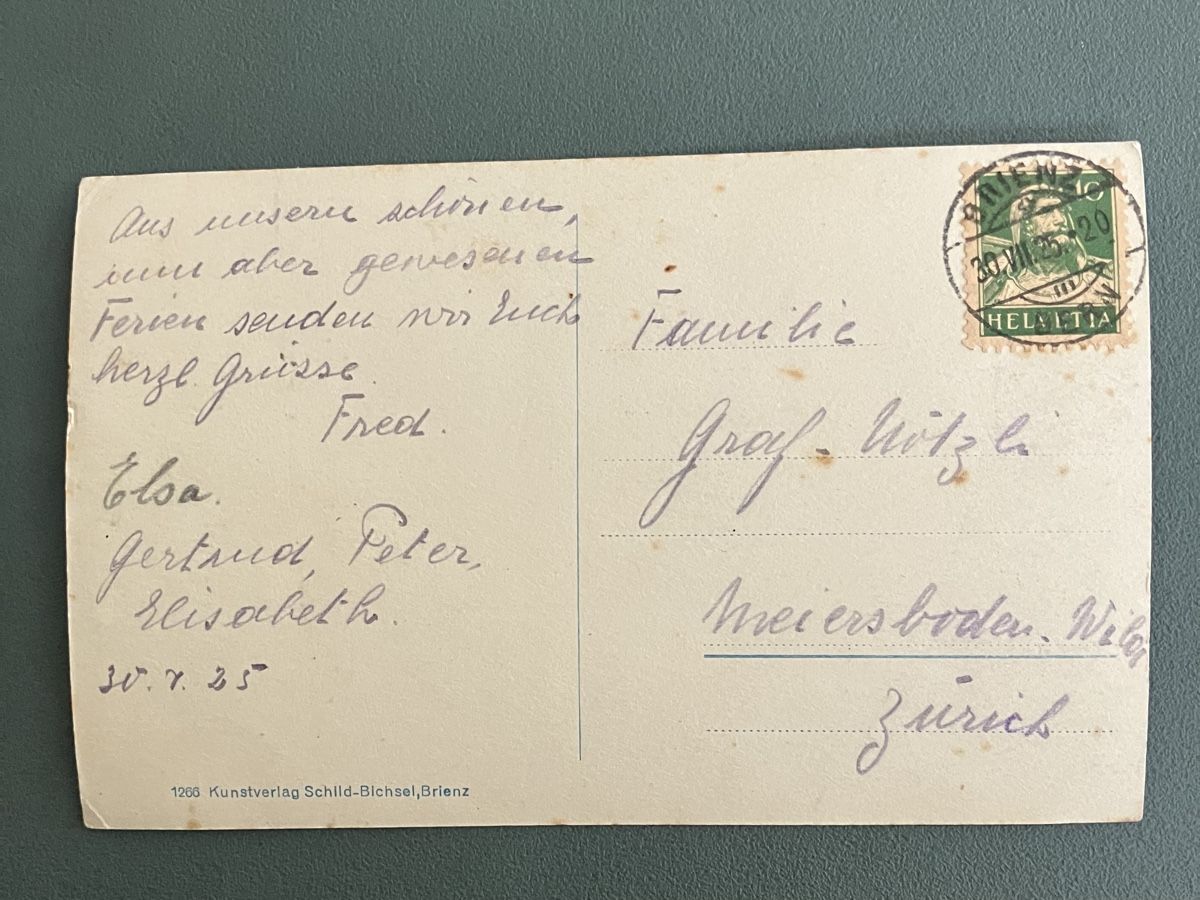 Aus unsern schönen,
nun aber gewesenen
Ferien senden wir Euch
herzl. Grüsse.
Fred.
Elsa.
Gertrud, Peter,
Elisabeth.
30. 7. 25
1266 Kunstverlag Schild-Bichsel, Brienz
BRIENZ
10
30.VII.25.-20
BERN
HELVETIA
Familie
Graf-Nötzli
Meiersboden.
Zürich